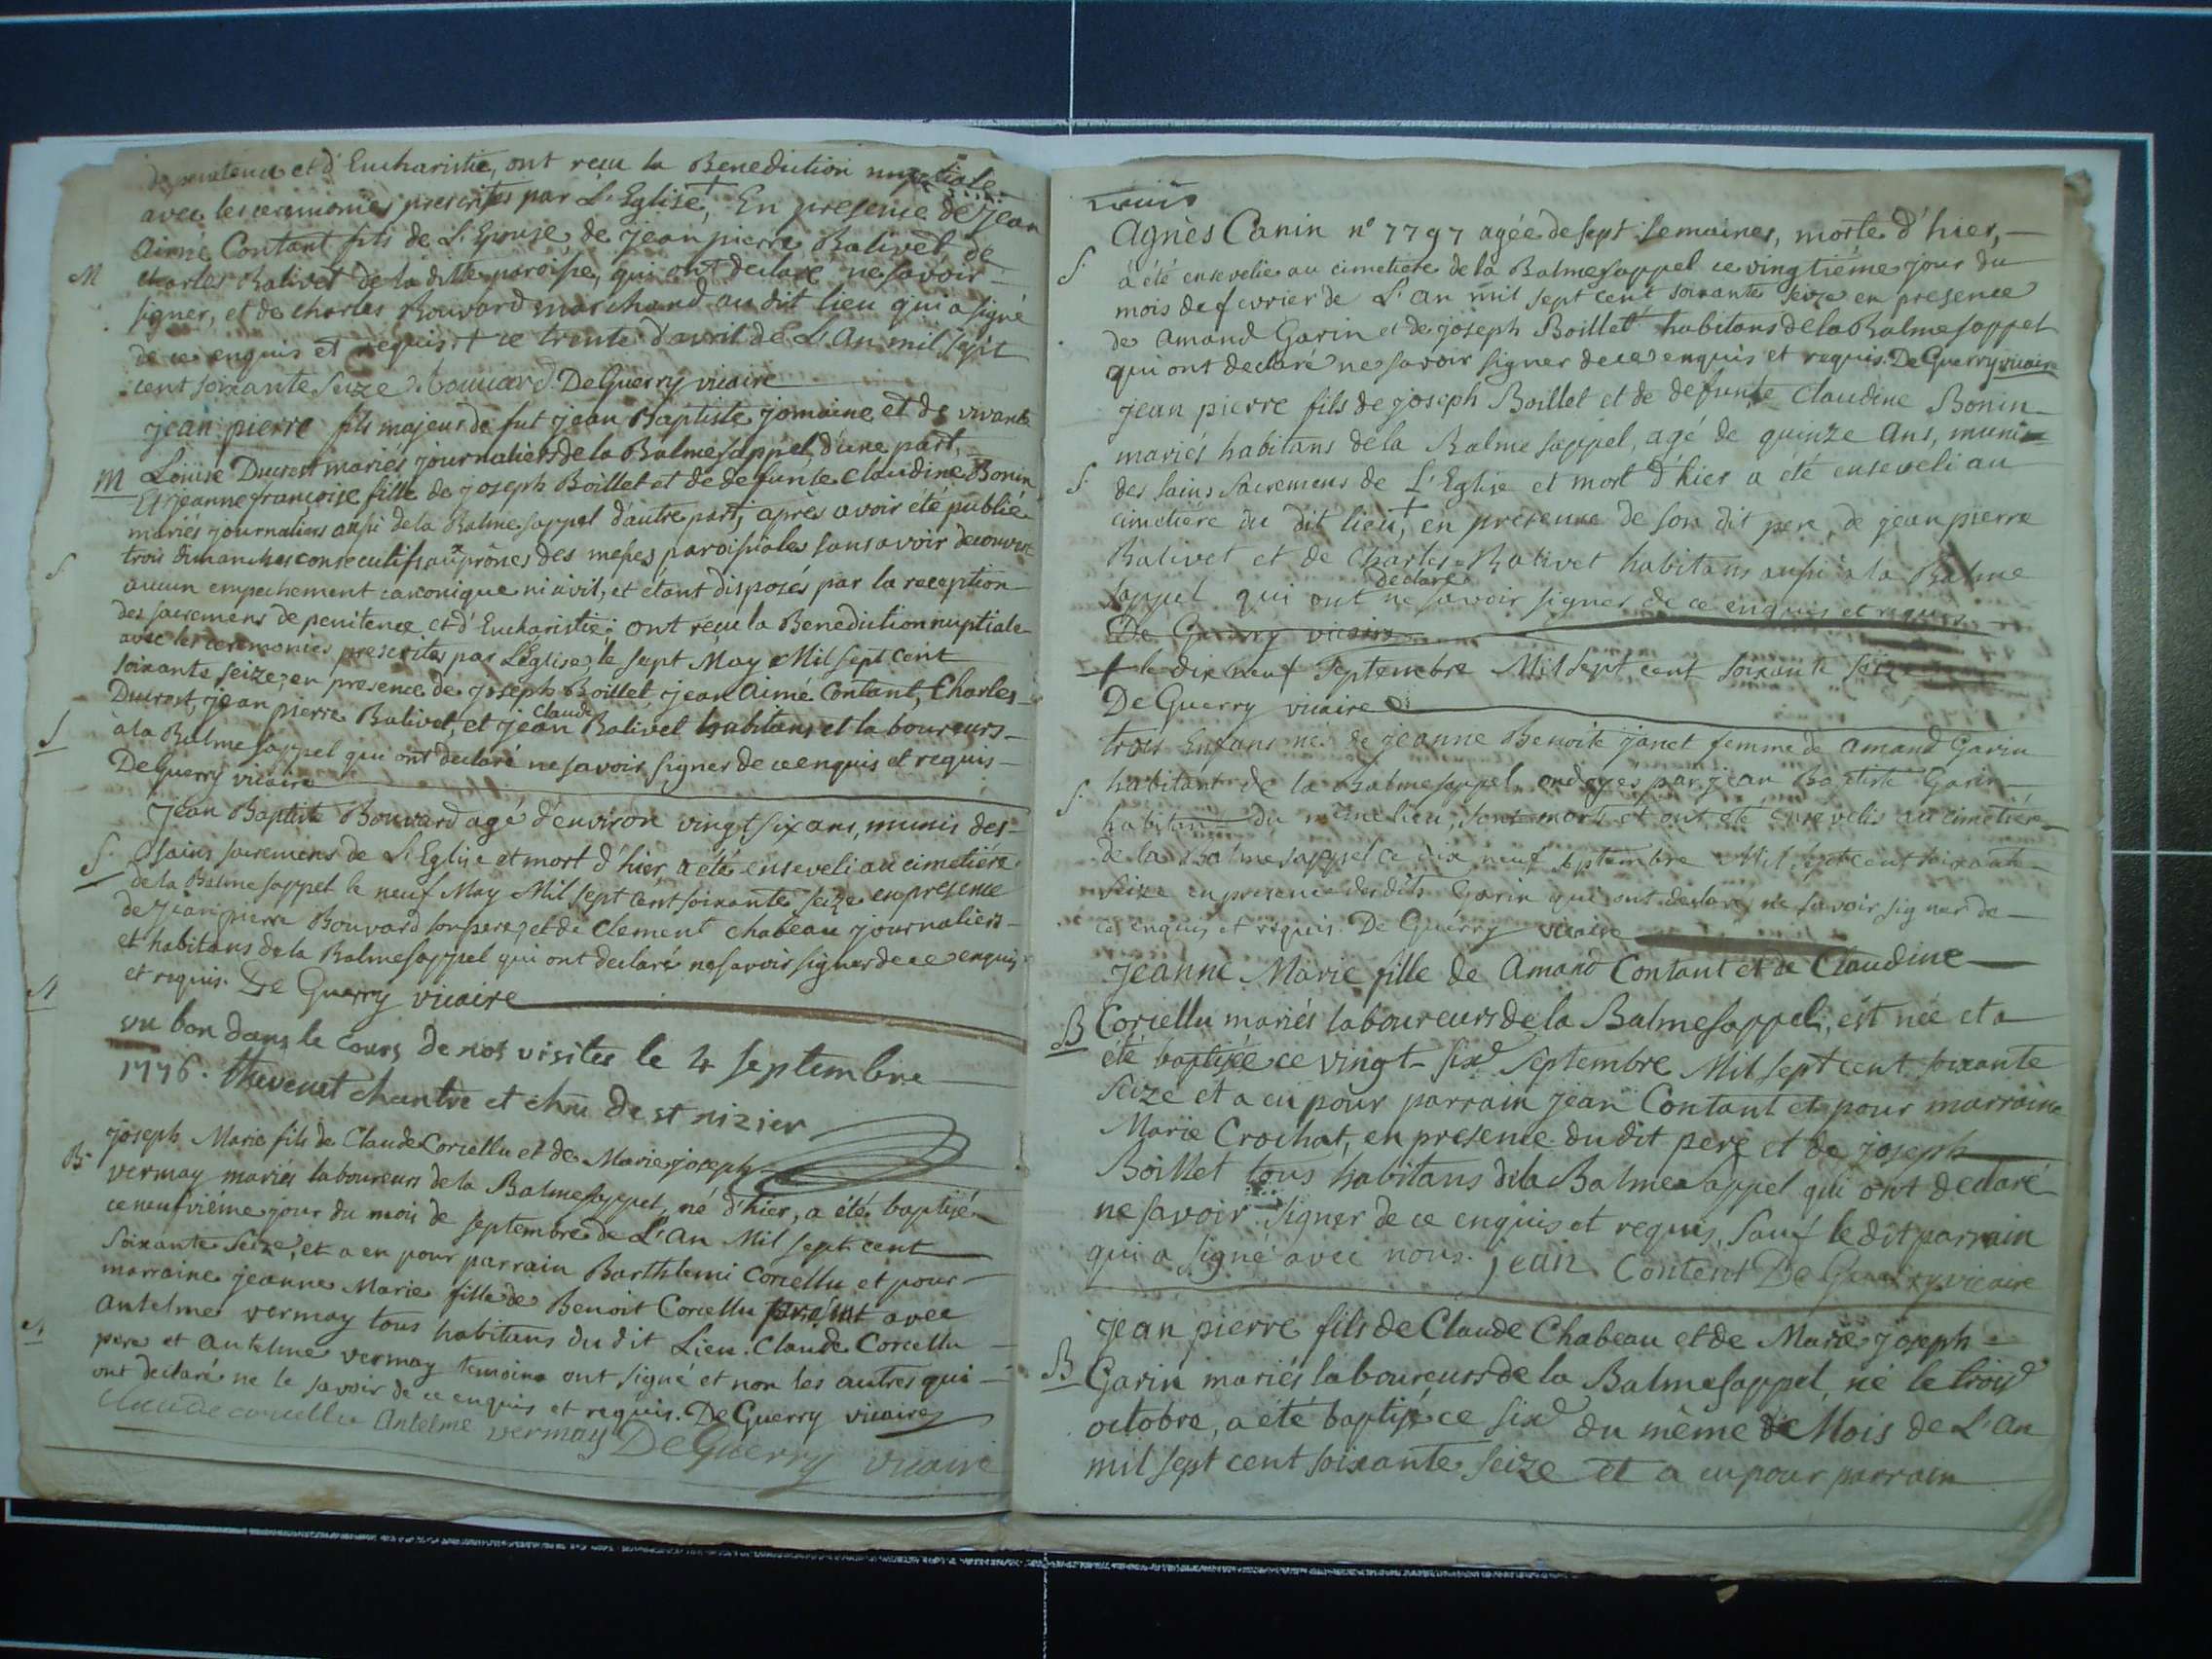 de penitence et d'Eucharistie, ont reçu la Benediction nuptiale
avec les ceremonies prescrites par L'Eglise,+ En presence de Jean
M
Aimé Contant fils de L'Epouse, de jean pierre Balivet de
charles Balivet de la ditte paroisse, qui ont declaré ne savoir
signer, et de charles Bouvard marchand au dit lieu qui a signé
de ce enquis et requis. + ce trente d'avril de L'An mil sept
cent soixante Seize. bouvard. De Guerry vicaire
jean pierre fils majeur de fut jean Baptiste jomaine et de vivante
M
Loüise Ducrest mariés journaliers de la Balmesappel, d'une part,
Et jeanne françoise fille de joseph Boillet et de defunte claudine Bonin
mariés journaliers aussi de la Balmesappel d'autre part, après avoir été publié
trois dimanches consecutifs aux prônes des messes paroissiales sans avoir decouvert
S
aucun empechement canonique ni civil, et etant disposés par la reception
des sacremens de penitence et d'Eucharistie; ont reçu la Benediction nuptiale
avec les ceremonies prescrites par L'Eglise, le sept May Mil sept cent
soixante seize, en presence de joseph Boillet, jean aimé Contant, Charles
Ducrest, jean pierre Balivet, et jean claude Balivet habitans et laboureurs
S
à la Balmesappel qui ont declaré ne savoir signer de ce enquis et requis
De Guerry vicaire
Jean Baptiste Bouvard agé d'environ vingt six ans, munis des
S.
sains sacremens de L'Eglise et mort d'hier, a été enseveli au cimetiére
de la Balmesappel le neuf May Mil sept cent soixante seize en presence
de jean pierre Bouvard son pere, et de Clement chabeau journaliers
et habitans de la Balmesappel qui ont declaré ne savoir signer de ce enquis
et requis. De Guerry vicaire
vu bon dans le cours de nos visites le 4 septembre
1776. thevenet chantre et chne de st nizier
joseph Marie fils de Claude Corcellu et de Marie joseph
B.
vermay mariés laboureurs de la Balmesappel, né d'hier, a été baptisé
ce neufviéme jour du mois de septembre de L'An Mil sept cent
Soixante Seize, et a eu pour parrain Barthlemi Corcellu et pour
marraine jeanne Marie fille de Benoit Corcellu present avec
Antelme vermay tous habitans du dit Lieu. Claude Corcellu
pere et Antelme vermay temoins ont signé et non les autres qui
ont declaré ne le savoir de ce enquis et requis. De Guerry vicaire
Claude corcellu Antelme vermay De Guerry vicaire
trois
Agnès Canin n° 7797 agée de sept semaines, morte d'hier,
S.
a été ensevelie au cimetiere de la Balmesappel ce vingtiéme jour du
mois de fevrier de L'an mil sept cent soixante seize en presence
de Amand Garin et de joseph Boillet habitans de la Balmesappel
qui ont declaré ne savoir signer de ce enquis et requis. De Guerry vicaire
jean pierre fils de joseph Boillet et de defunte Claudine Bonin
mariés habitans de la Balme sappel, agé de quinze ans, muni
S.
des sains sacremens de L'Eglise et mort d'hier a été enseveli au
cimetiére du dit lieu,+ en presence de son dit pere, de jean pierre
Balivet et de Charles Balivet habitans aussi à la Balme
sappel qui ont declaré ne savoir signer de ce enquis et requis
De Guerry vicaire
+ le dix neuf Septembre Mil sept cent soixante seize
De Guerry vicaire
trois Enfans né de jeanne Benoite janet femme de amand Garin
S.
habitant de la Balmesappel ondoyés par jean Baptiste Garin
habitan du même lieu, sont morts et ont été ensevelis au cimetiére
de la Balmesappel ce dix neuf septembre Mil sept cent soixante
seize en presence des dits Garin qui ont declaré ne savoir signer de
ce enquis et requis. De Guerry vicaire
Jeanne Marie fille de Amand Contant et de Claudine
B
Corcellu mariés laboureurs de la Balmesappel, est née et a
été baptisée ce vingt-six Septembre Mil sept cent soixante
seize et a eü pour parrain jean Contant et pour marraine
Marie Crochat, en presence du dit pere et de joseph
Boillet tous habitans de la Balme sappel qui ont declaré
ne savoir signer de ce enquis et requis, Sauf le dit parrain
qui a signé avec nous. jean Content De Guerry vicaire
Jean pierre fils de Claude Chabeau et de Marie joseph
B
Garin mariés laboureurs de la Balmesappel, né le trois
octobre, a été baptisé ce six du même de Mois de L'An
mil sept cent soixante seize et a eu pour parrain